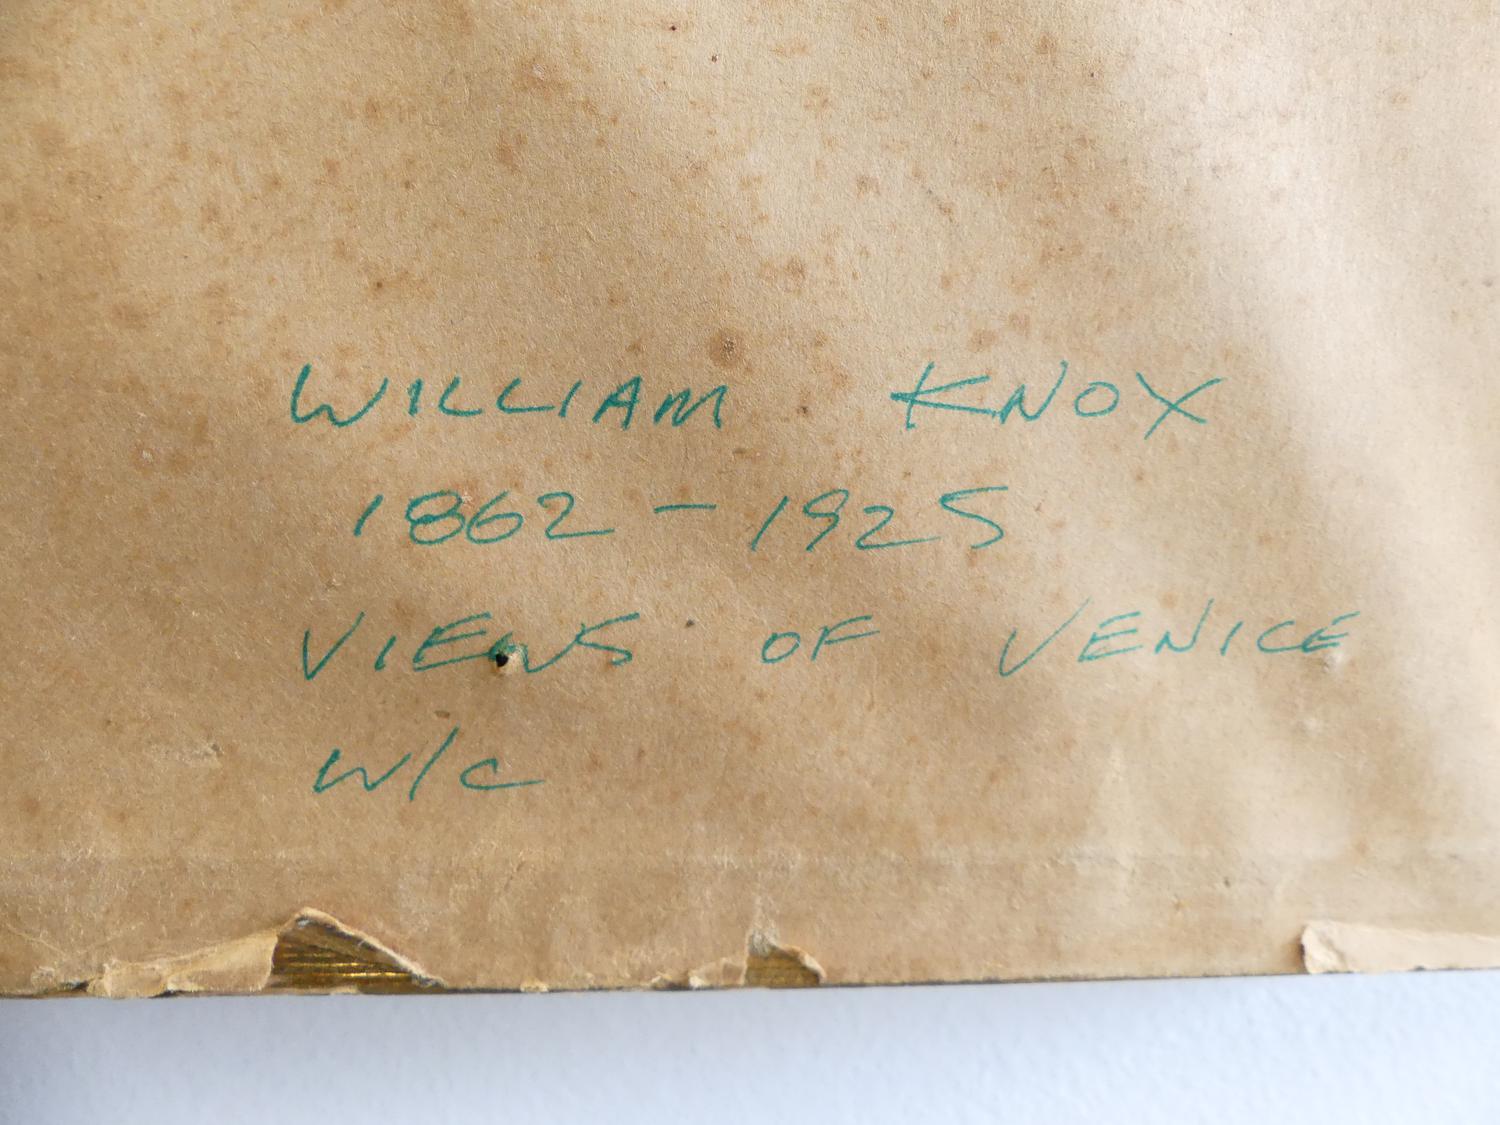 WILLIAM KNOX
1862 - 1925
VIEWS OF VENICE
W/C